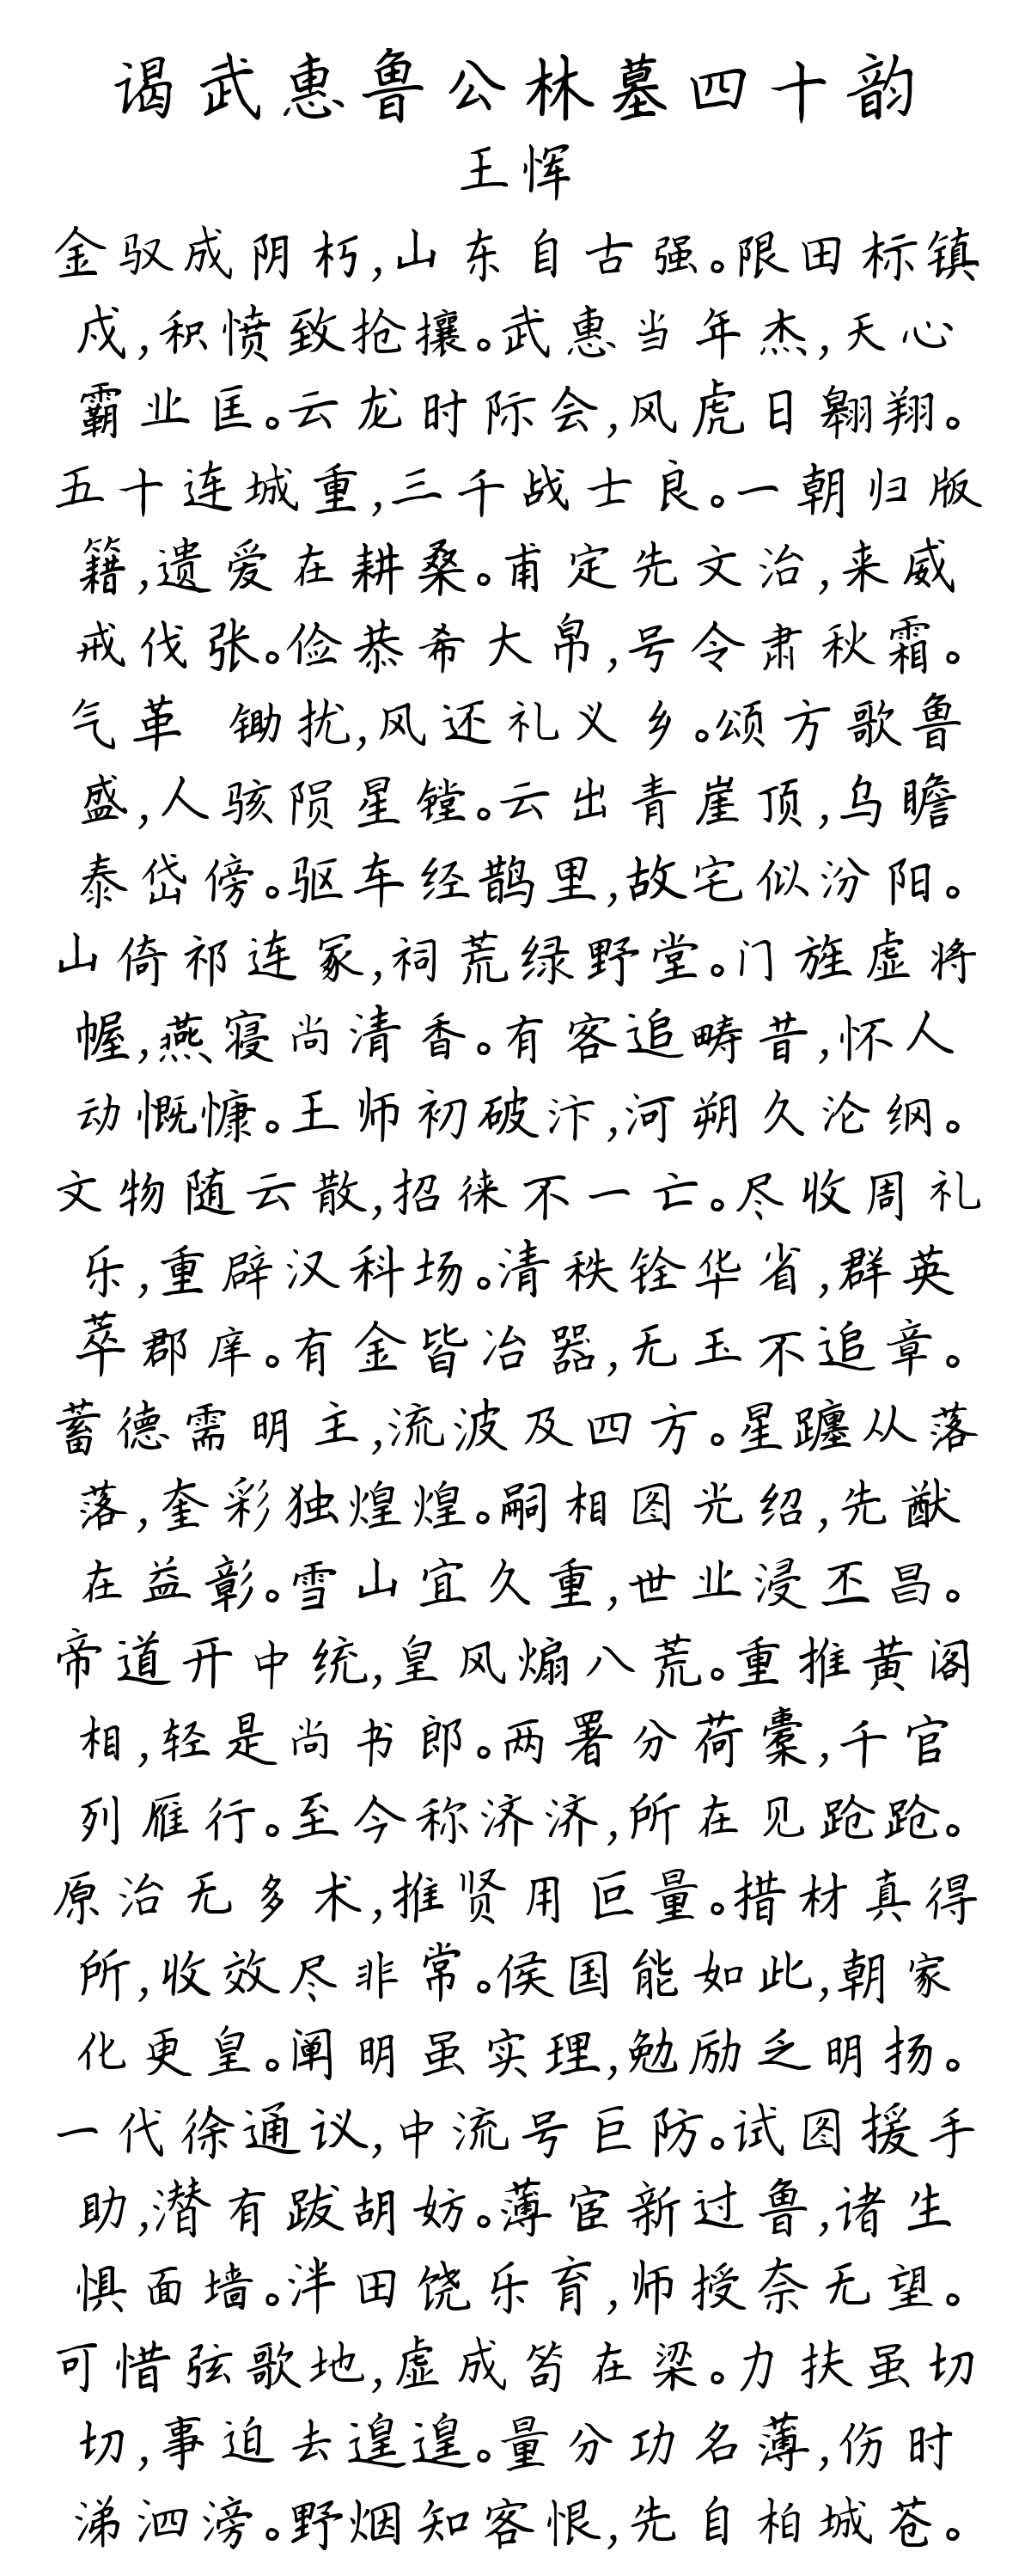 谒武惠鲁公林墓四十韵
王恽
金驭成阴朽,山东自古强。限田标镇
戍,积愤致抢攘。武惠当年杰,天心
霸业匡。云龙时际会,风虎日翱翔。
五十连城重,三千战士良。一朝归版
籍,遗爱在耕桑。甫定先文治,来威
戒伐张。俭恭希大帛,号令肃秋霜。
气革 锄扰,风还礼义乡。颂方歌鲁
盛,人骇陨星镗。云出青崖顶,乌瞻
泰岱傍。驱车经鹊里,故宅似汾阳。
山倚祁连冢,祠荒绿野堂。门旌虚将
幄,燕寝尚清香。有客追畴昔,怀人
动慨慷。王师初破汴,河朔久沦纲。
文物随云散,招徕不一亡。尽收周礼
乐,重辟汉科场。清秩铨华省,群英
萃郡庠。有金皆冶器,无玉不追章。
蓄德需明主,流波及四方。星躔从落
落,奎彩独煌煌。嗣相图光绍,先猷
在益彰。雪山宜久重,世业浸丕昌。
帝道开中统,皇风煽八荒。重推黄阁
相,轻是尚书郎。两署分荷橐,千官
列雁行。至今称济济,所在见跄跄。
原治无多术,推贤用叵量。措材真得
所,收效尽非常。侯国能如此,朝家
化更皇。阐明虽实理,勉励乏明扬。
一代徐通议,中流号巨防。试图援手
助,潜有跋胡妨。薄宦新过鲁,诸生
惧面墙。泮田饶乐育,师授奈无望。
可惜弦歌地,虚成笱在梁。力扶虽切
切,事迫去遑遑。量分功名薄,伤时
涕泗滂。野烟知客恨,先自柏城苍。